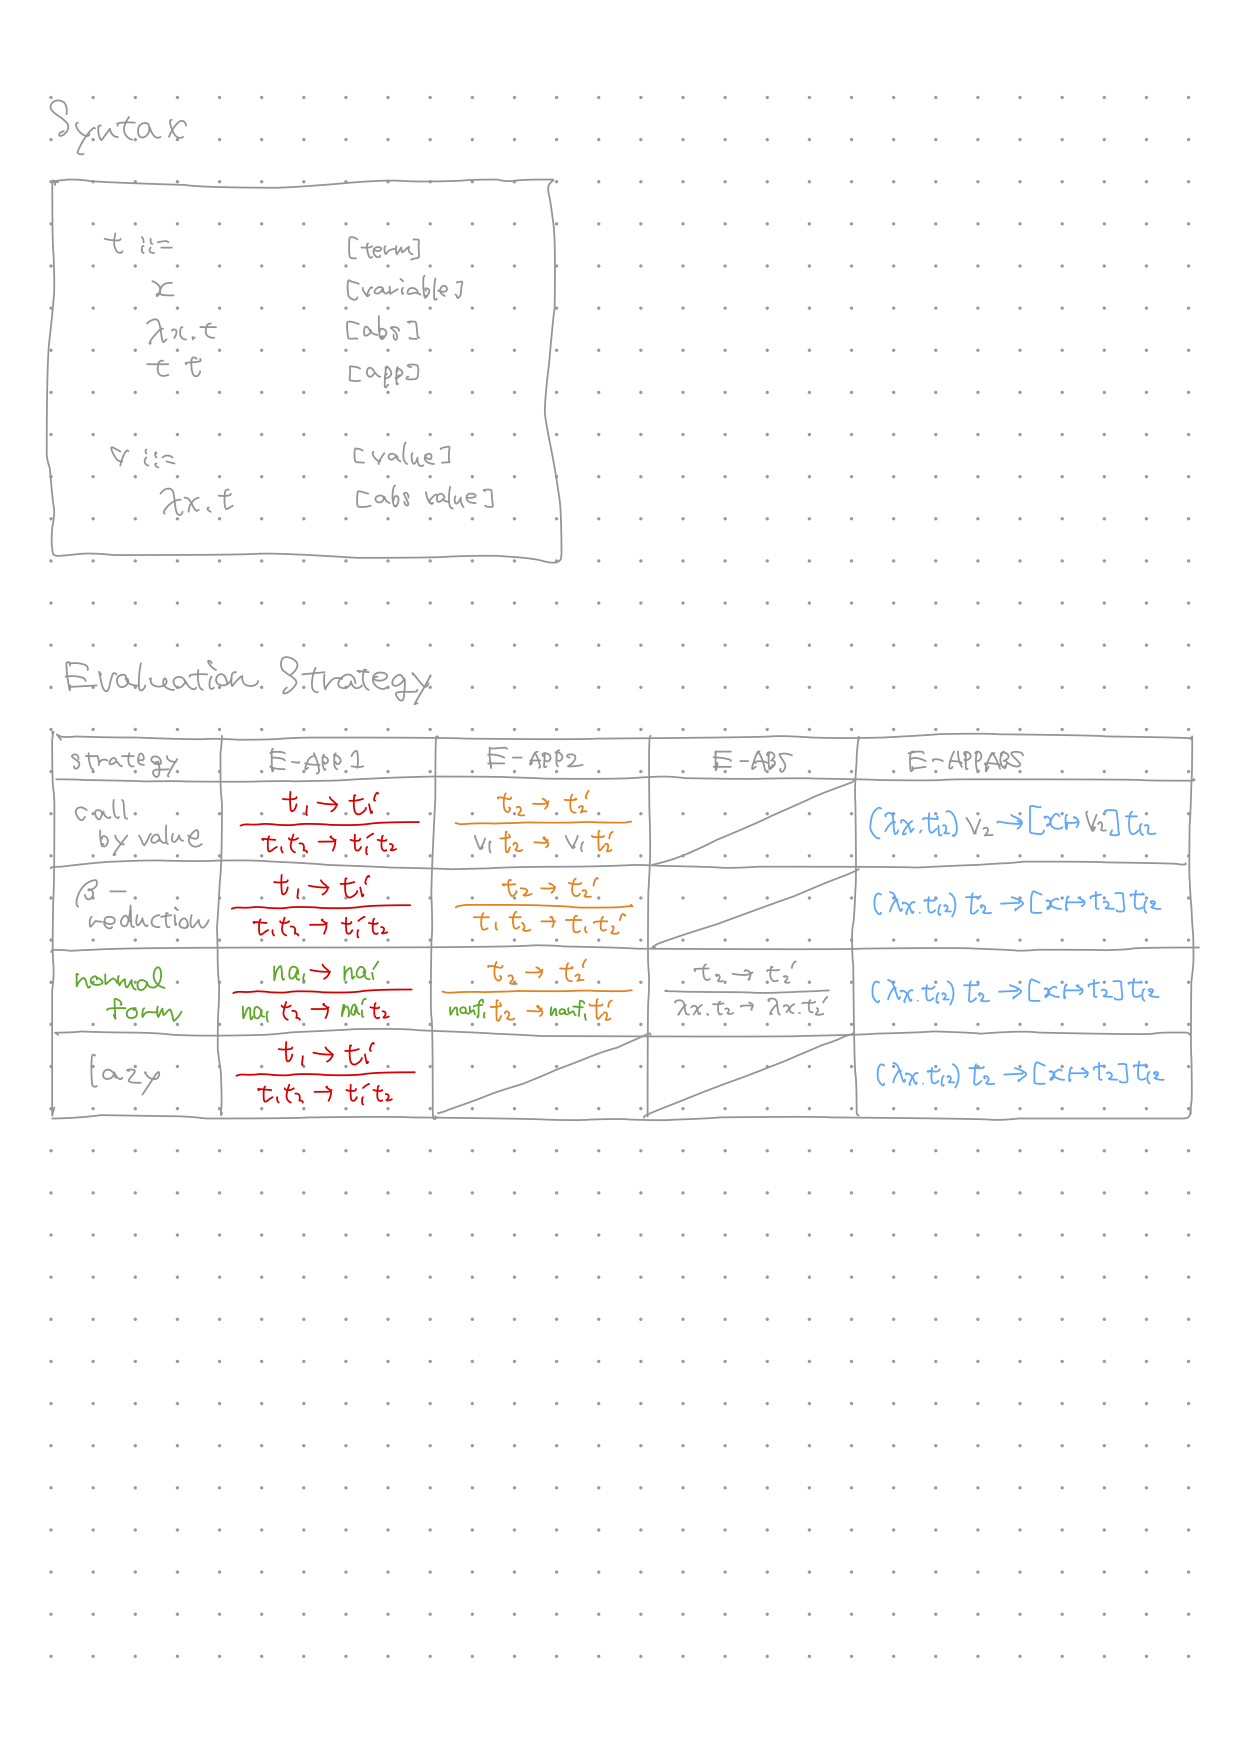 Syntax
t ::= [term]
x [variable]
λx.t [abs]
t t [app]
v ::= [value]
λx.t [abs value]
Evaluation Strategy
strategy E-APP1 E-APP2 E-ABS E-APPABS
call by value
t₁ → t₁′
t₁t₂ → t₁′t₂
t₂ → t₂′
v₁ t₂ → v₁ t₂′
(λx.t₁₂) v₂ → [x ↦ v₂] t₁₂
β-reduction
t₁ → t₁′
t₁t₂ → t₁′t₂
t₂ → t₂′
t₁ t₂ → t₁ t₂′
(λx.t₁₂) t₂ → [x ↦ t₂] t₁₂
normal form
na₁ → na₁′
na₁ t₂ → na₁′ t₂
t₂ → t₂′
nanf₁ t₂ → nanf₁ t₂′
t₂ → t₂′
λx.t₂ → λx.t₂′
(λx.t₁₂) t₂ → [x ↦ t₂] t₁₂
lazy
t₁ → t₁′
t₁t₂ → t₁′t₂
(λx.t₁₂) t₂ → [x ↦ t₂] t₁₂